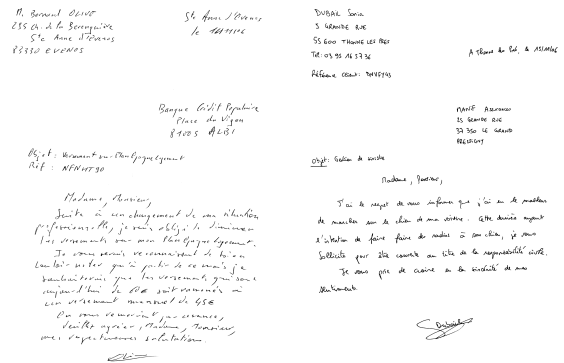 M. Bernard OLIVE
235 Ch. de la Berenguière
Ste Anne d'Evenos
83330 EVENOS
Ste Anne d'Evenos
le
Banque Crédit Populaire
Place du Vigan
81005 ALBI
Objet : Versement sur Plan Epargne Logement
Réf : NFNVT90
Madame, Monsieur,
Suite à un changement de ma situation
professionnelle, je suis obligé de diminuer
les versements sur mon Plan Epargne Logement.
Je vous serais reconnaissant de bien
vouloir noter qu'à partir de ce mois je
souhaiterais que les versements qui sont
aujourd'hui de soit ramenés à
un versement mensuel de 45€
En vous remerciant par avance,
veuillez agréer, Madame, Monsieur,
mes respectueuses salutations.
DUBAIL Sonia
5 GRANDE RUE
55600 THONNE LES PRES
Tél: 03 95 16 37 36
Référence client:
A Thonne les Prés, le
MANIE Assurances
25 GRANDE RUE
37350 LE GRAND
PRESSIGNY
Objet: Gestion de sinistre
Madame, Monsieur,
J'ai le regret de vous informer que j'ai eu le malheur
de marcher sur le chien de ma voisine. Cette dernière ayant
l'intention de faire faire des radios à son chien, je vous
sollicite pour être couverte au titre de la responsabilité civile.
Je vous prie de croire en la sincérité de mes
sentiments.